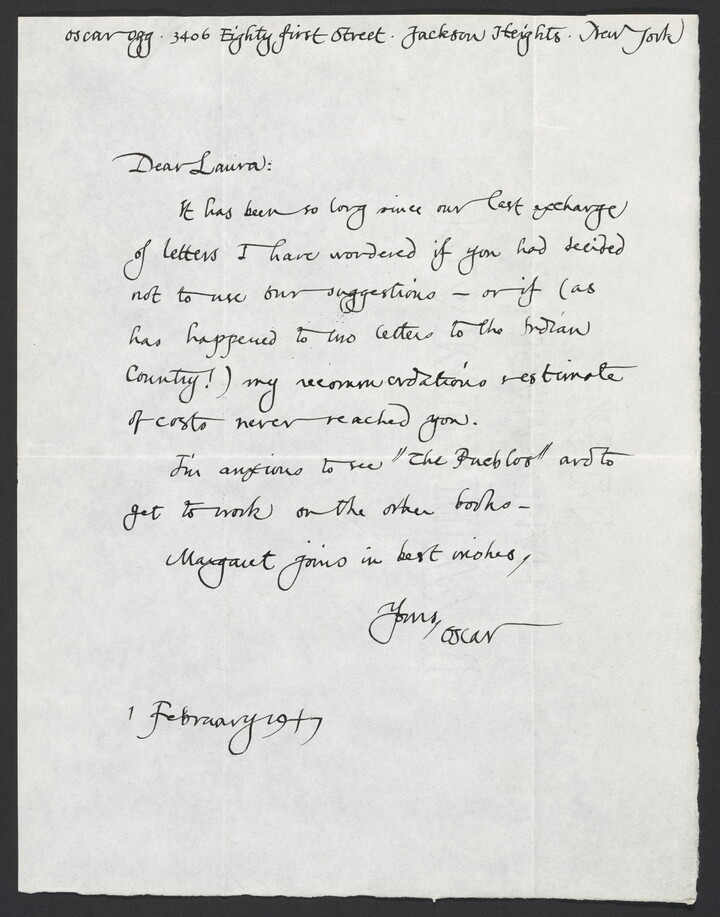 oscar ogg · 3406 Eighty first Street · Jackson Heights · New York
Dear Laura:
It has been so long since our last exchange
of letters I have wondered if you had decided
not to use our suggestions — or if (as
has happened to two letters to the Indian
Country!) my recommendations & estimate
of costs never reached you.
I'm anxious to see "The Pueblos" and to
get to work on the other books —
Margaret joins in best wishes,
Yours,
oscar
1 February 1947